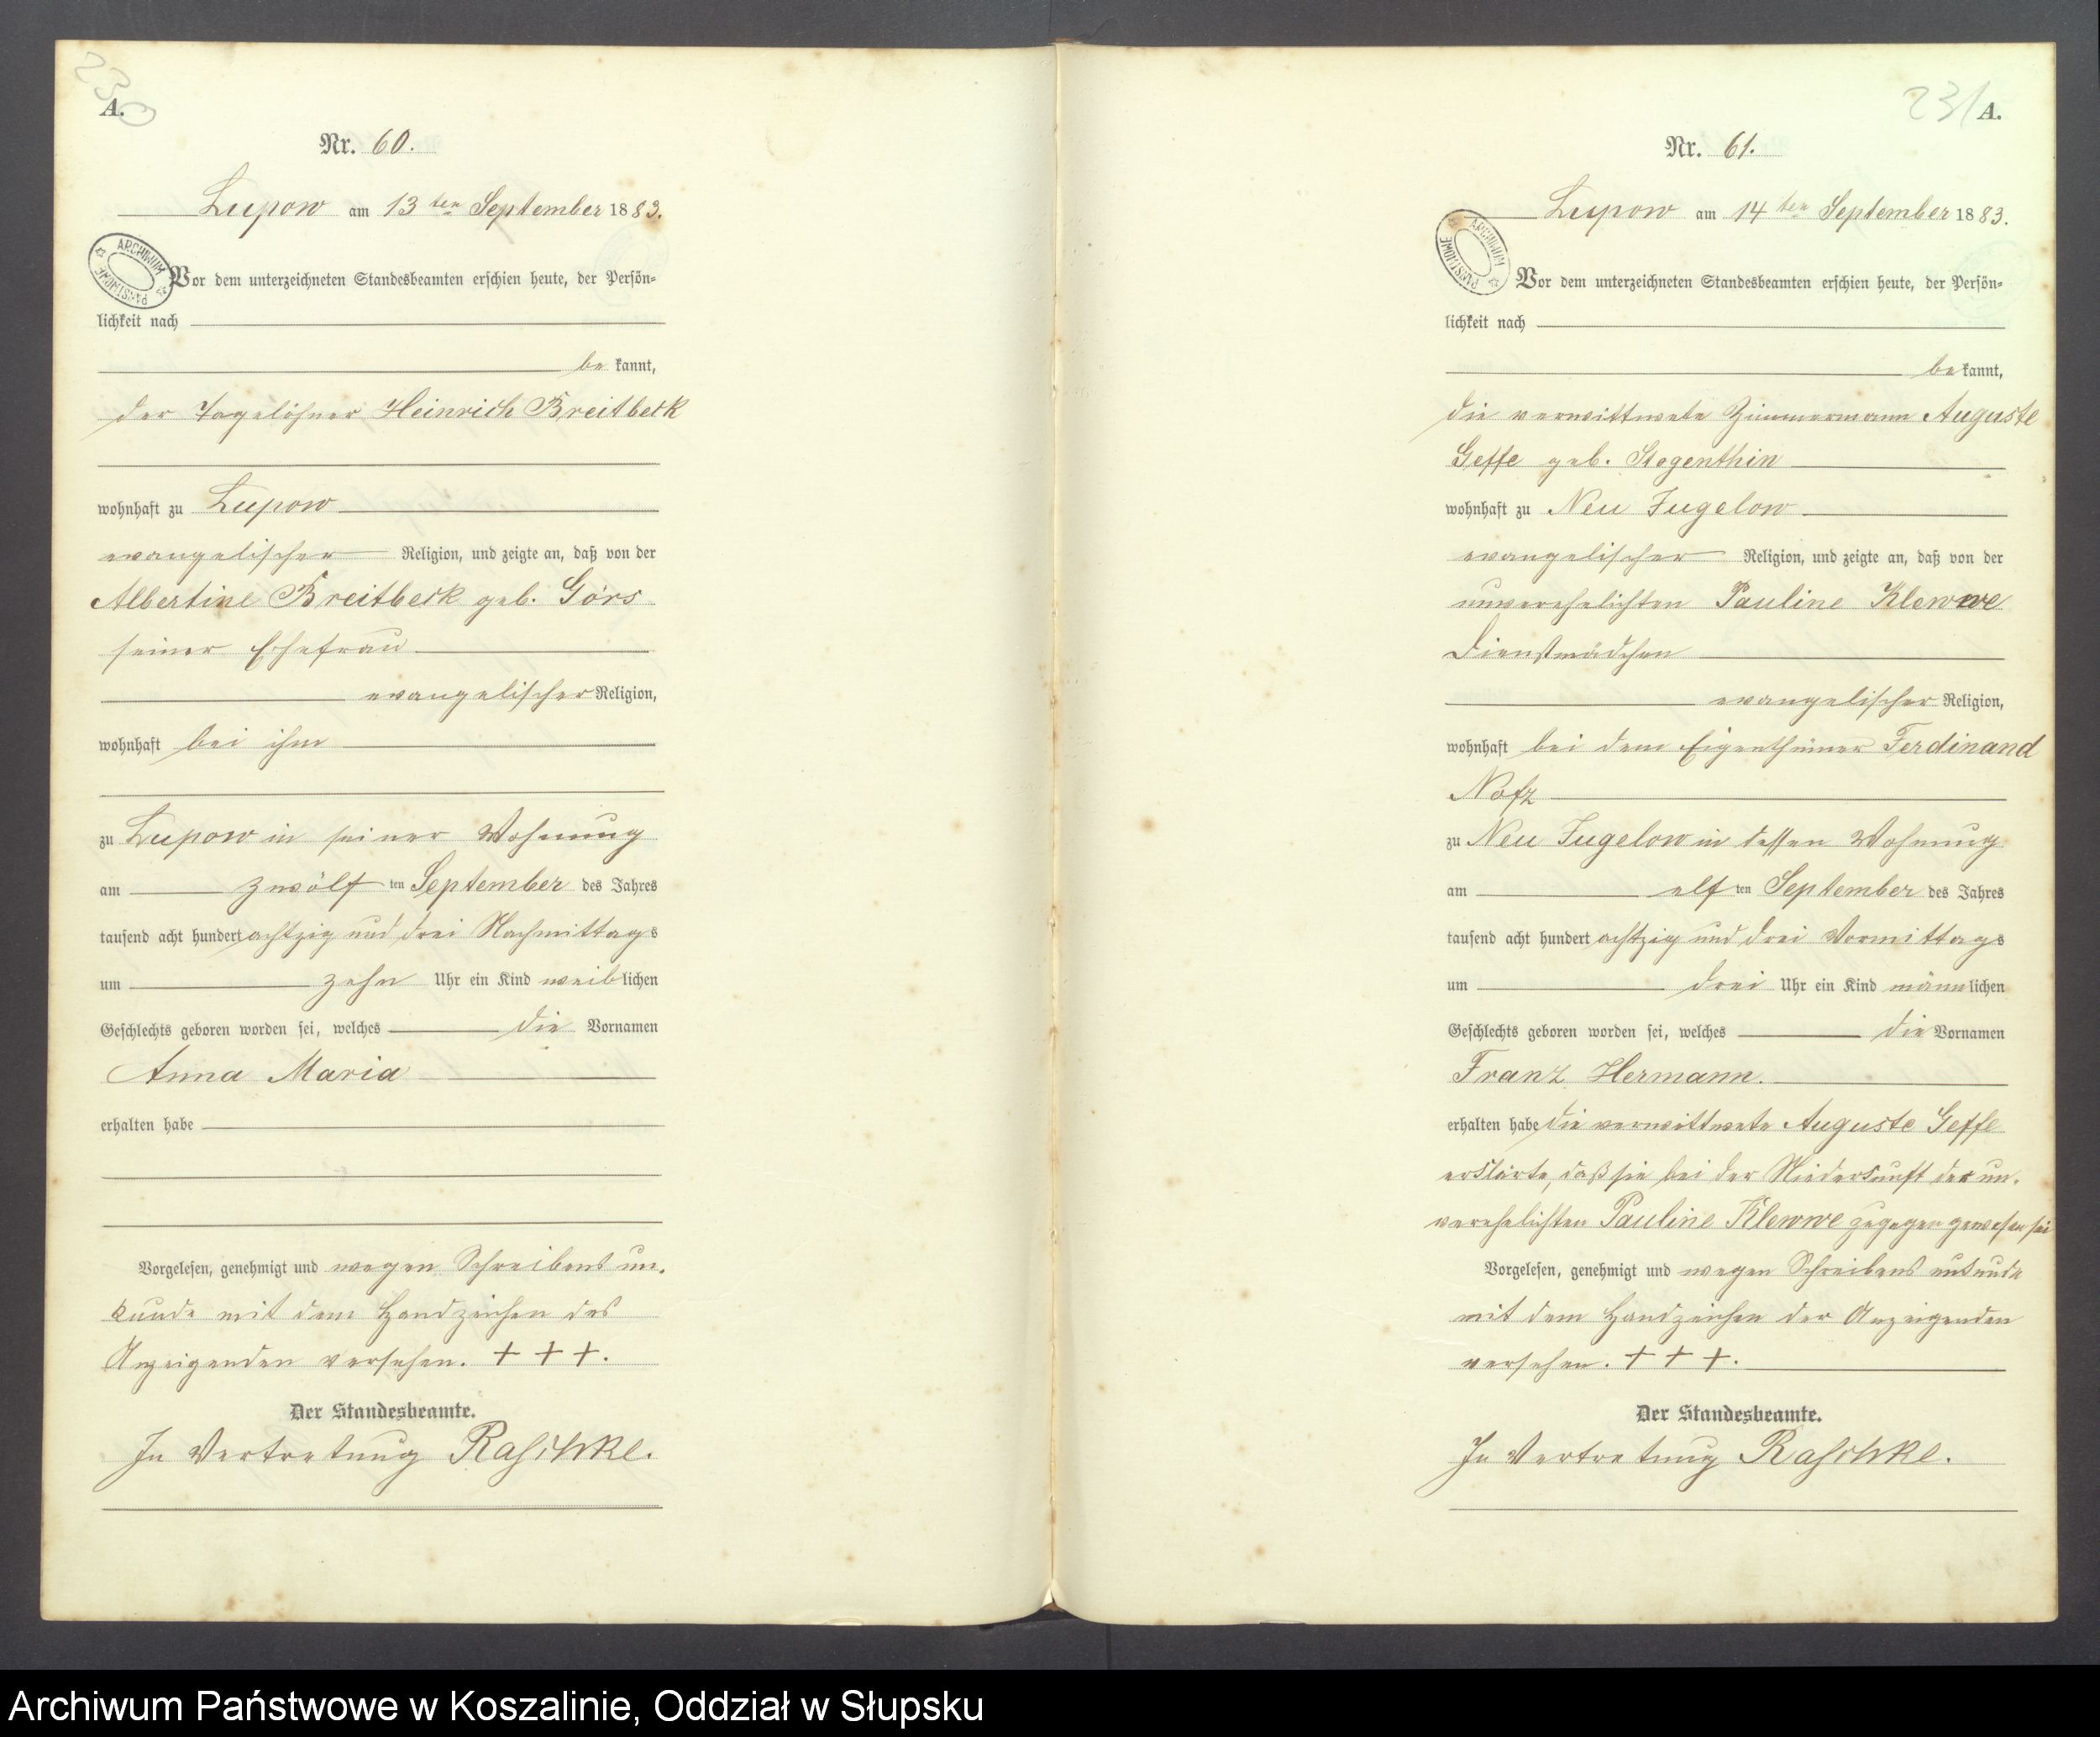 230
A.
Nr. 60.
Lupow am 13ten September 1883.
ARCHIWUM PAŃSTWOWE
Vor dem unterzeichneten Standesbeamten erschien heute, der Persön=
lichkeit nach
be kannt,
der Tagelöhner Heinrich Breitbeck
wohnhaft zu Lupow
evangelischer Religion, und zeigte an, daß von der
Albertine Breitbeck geb. Görs
seiner Ehefrau
evangelischer Religion,
wohnhaft bei ihm
zu Lupow in seiner Wohnung
am zwölf ten September des Jahres
tausend acht hundert achtzig und drei Nachmittags
um zehn Uhr ein Kind weiblichen
Geschlechts geboren worden sei, welches die Vornamen
Anna Maria
erhalten habe
Vorgelesen, genehmigt und wegen Schreibens un-
kunde mit dem Handzeichen des
Anzeigenden versehen. + + +.
Der Standesbeamte.
In Vertretung Raschke.
231
A.
Nr. 61.
Lupow am 14ten September 1883.
ARCHIWUM PAŃSTWOWE
Vor dem unterzeichneten Standesbeamten erschien heute, der Persön=
lichkeit nach
be kannt,
die verwittwete Zimmermann Auguste
Geffe geb. Stegenthin
wohnhaft zu Neu Jugelow
evangelischer Religion, und zeigte an, daß von der
unverehelichten Pauline Klewwe
Dienstmädchen
evangelischer Religion,
wohnhaft bei dem Eigenthümer Ferdinand
zu Neu Jugelow in dessen Wohnung
am elf ten September des Jahres
tausend acht hundert achtzig und drei Vormittags
um drei Uhr ein Kind männlichen
Geschlechts geboren worden sei, welches die Vornamen
Franz Hermann.
erhalten habe die verwittwete Auguste Geffe
erklärte, daß sie bei der Niederkunft der un-
verehelichten Pauline Klewwe zugegen gewesen sei
Vorgelesen, genehmigt und wegen Schreibens unkunde
mit dem Handzeichen der Anzeigenden
versehen. + + +.
Der Standesbeamte.
In Vertretung Raschke.
Archiwum Państwowe w Koszalinie, Oddział w Słupsku